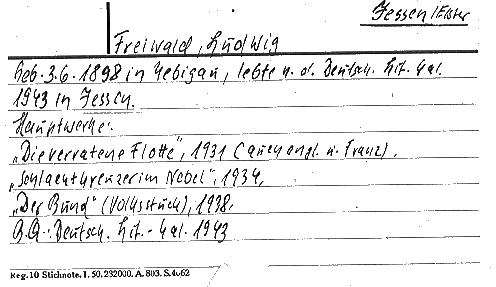 Jessen/Elster
Freiwald, Ludwig
Geb. 3.6.1898 in Uebigau, lebte n. d. Deutsch. Lit. Kal.
1943 in Jessen.
Hauptwerke:
„Die verratene Flotte", 1931 (auch engl. u. franz).
„Schlachtkreuzer im Nebel", 1934.
„Der Bund" (Volksstück), 1938.
Deutsch. Lit. - Kal. 1943
Reg. 10 Stichnote. 1. 50. 232000. A. 803. S. 4062